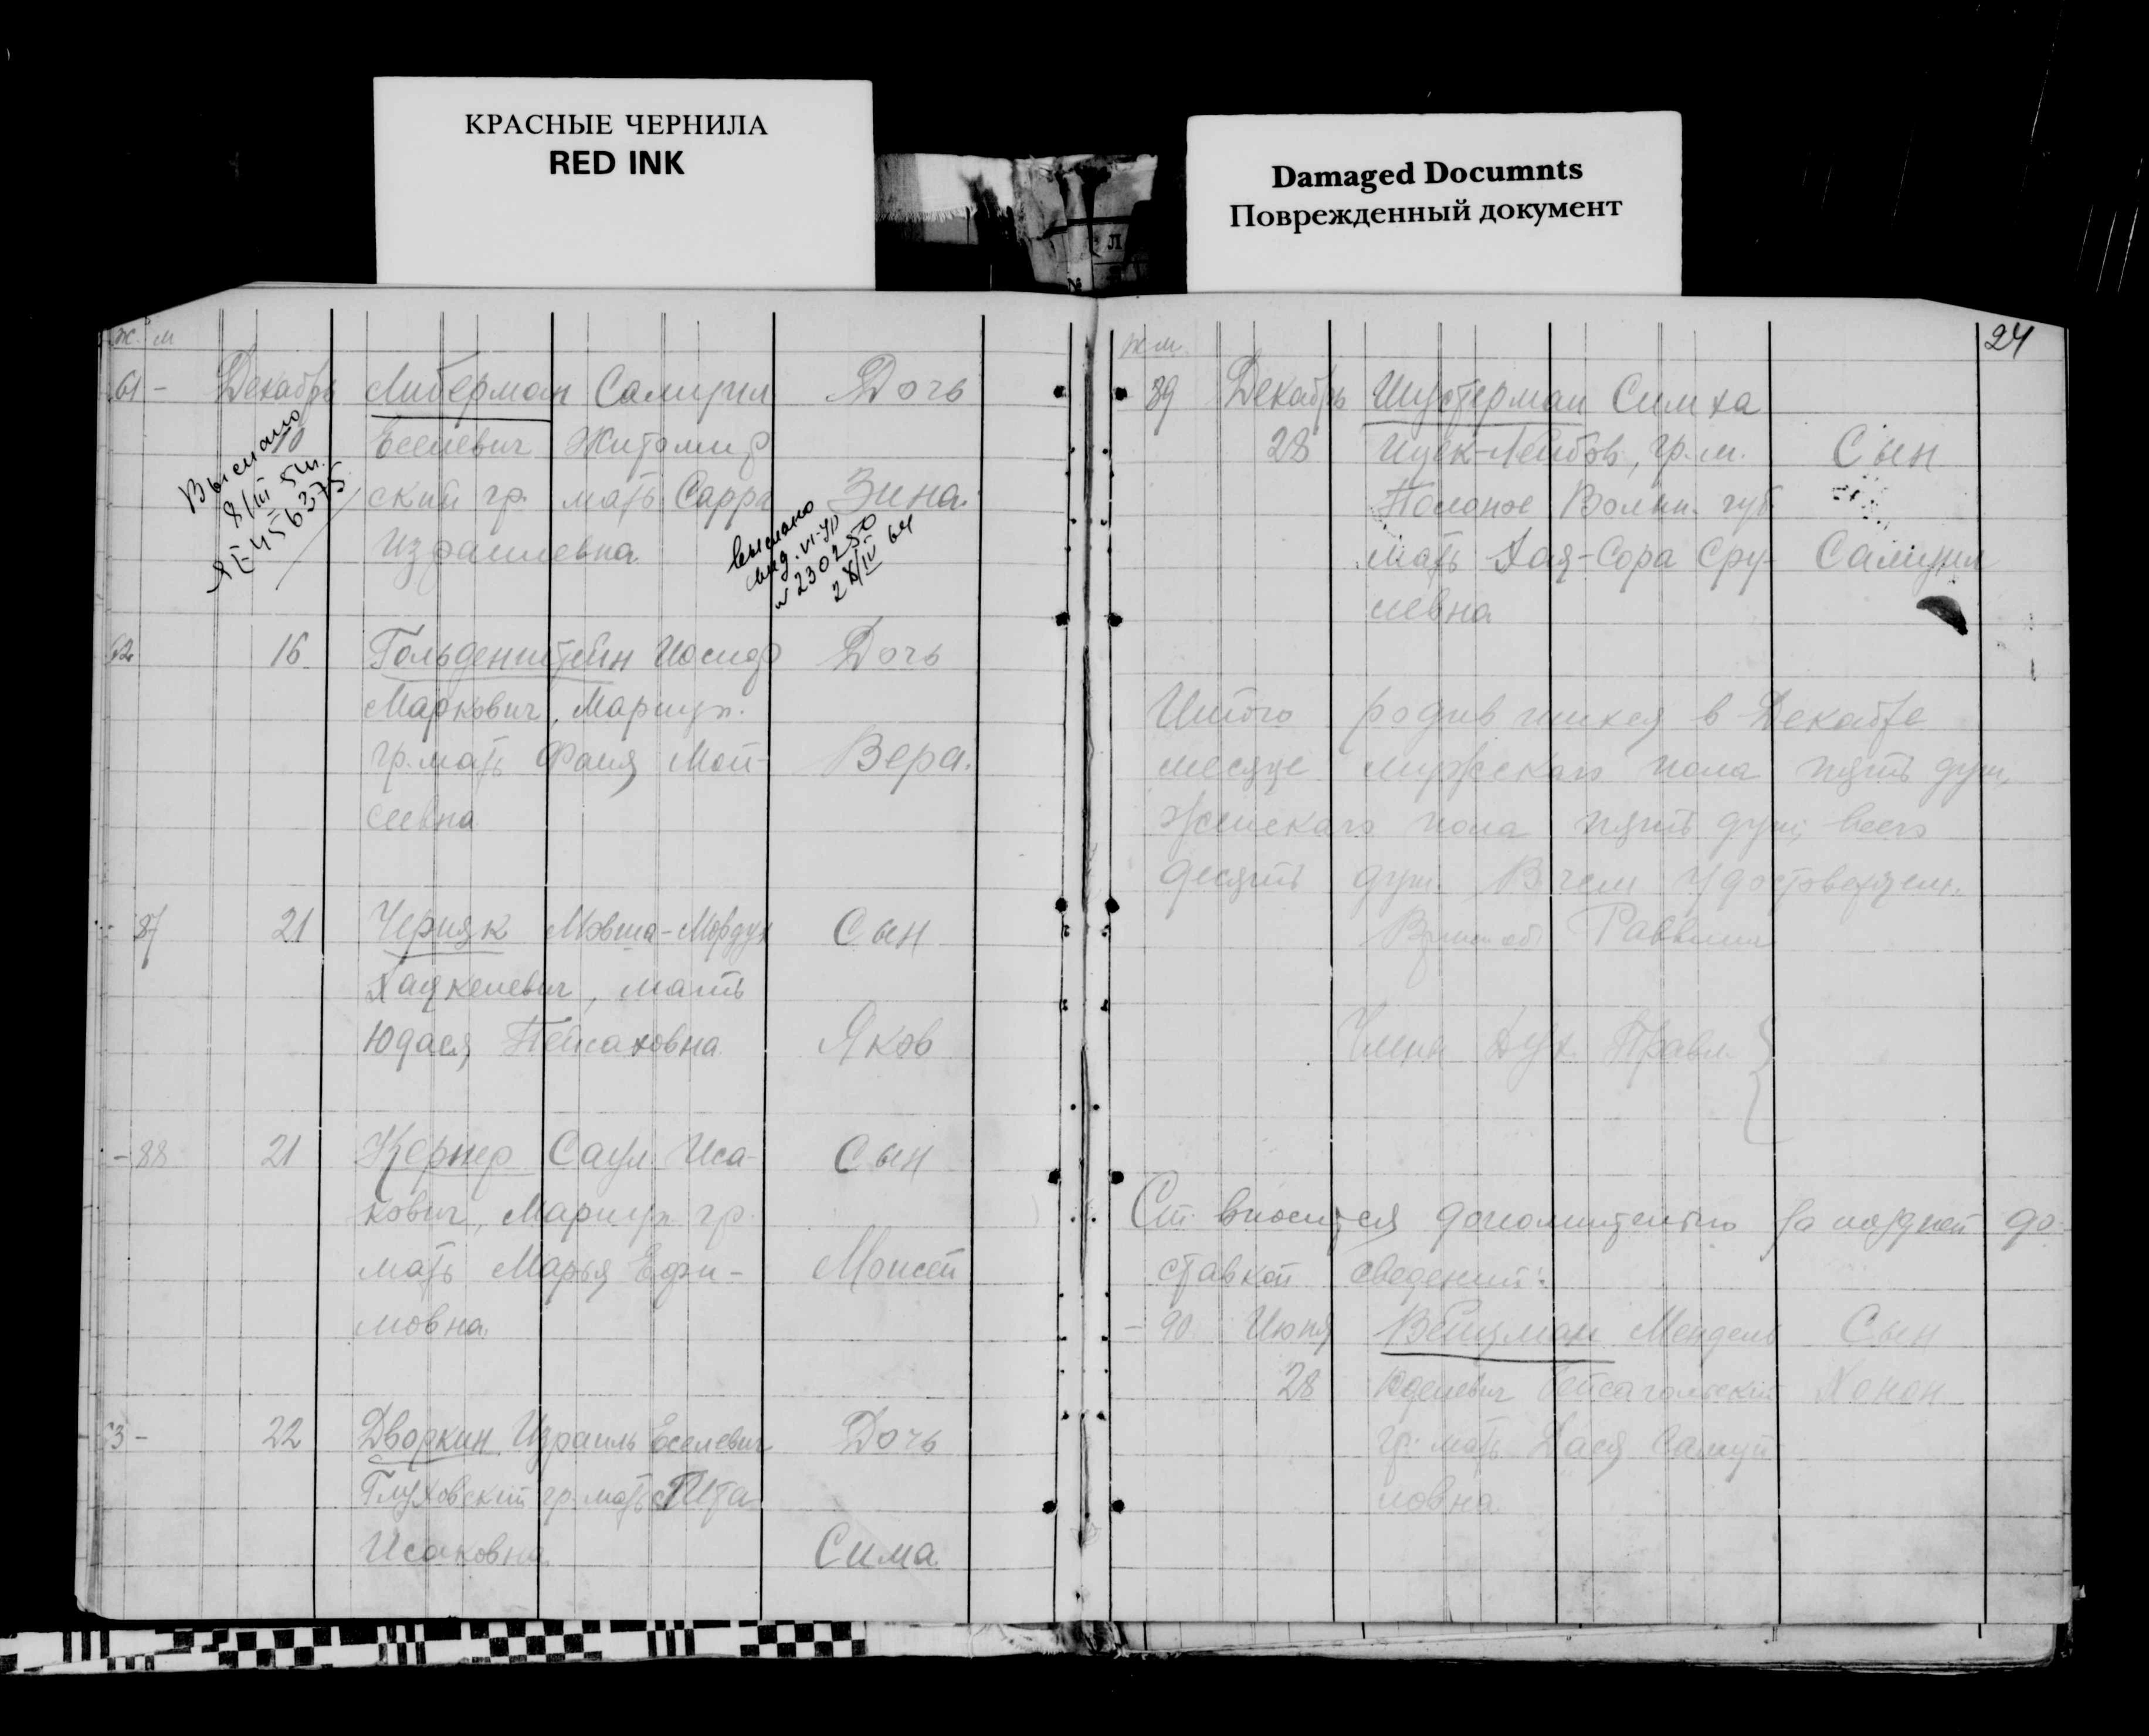 КРАСНЫЕ ЧЕРНИЛА
RED INK
Damaged Documnts
Поврежденный документ
ж. м
61 - Декабрь Либерман Самуил Дочь
10 Еселевич Житомир
ский гр. мать Сарра Зина.
Израилевна
Выслано
8/III 5
456375
выслано
свид. VI-
N 230250
2X/IV 64
62 16 Гольденштейн Иосиф Дочь
Маркович, Мариуп.
гр. мать Фаня Мои- Вера.
сеевна
- 87 21 Черняк Мовша-Мордух Сын
Хацкелевич, мать
Юдася Пейсаховна Яков
- 88 21 Кернер Саул Иса- Сын
кович, Мариуп. гр.
мать Марья Ефи- Моисей
мовна.
63 - 22 Дворкин Израиль Еселевич Дочь
Глуховский гр. мать Ита
Исаковна. Сима.
24
ж м.
89 Декабрь Шустерман Симха
28 Ицек-Лейбов, гр. м. Сын
Полоное Волын. губ
мать Хая-Сора Сру- Самуил
левна
Итого родившихся в Декабре
месяце мужскаго пола пять душ,
женскаго пола пять душ, всего
десять душ. В чем удостоверяем.
Раввина
Члены Дух. Правл.
вносится дополнительно за поздней до-
ставкой сведений:
- 90 Июня Вейцман Мендель Сын
28 Юделевич Хонон
гр. мать Хася Самуй
ловна